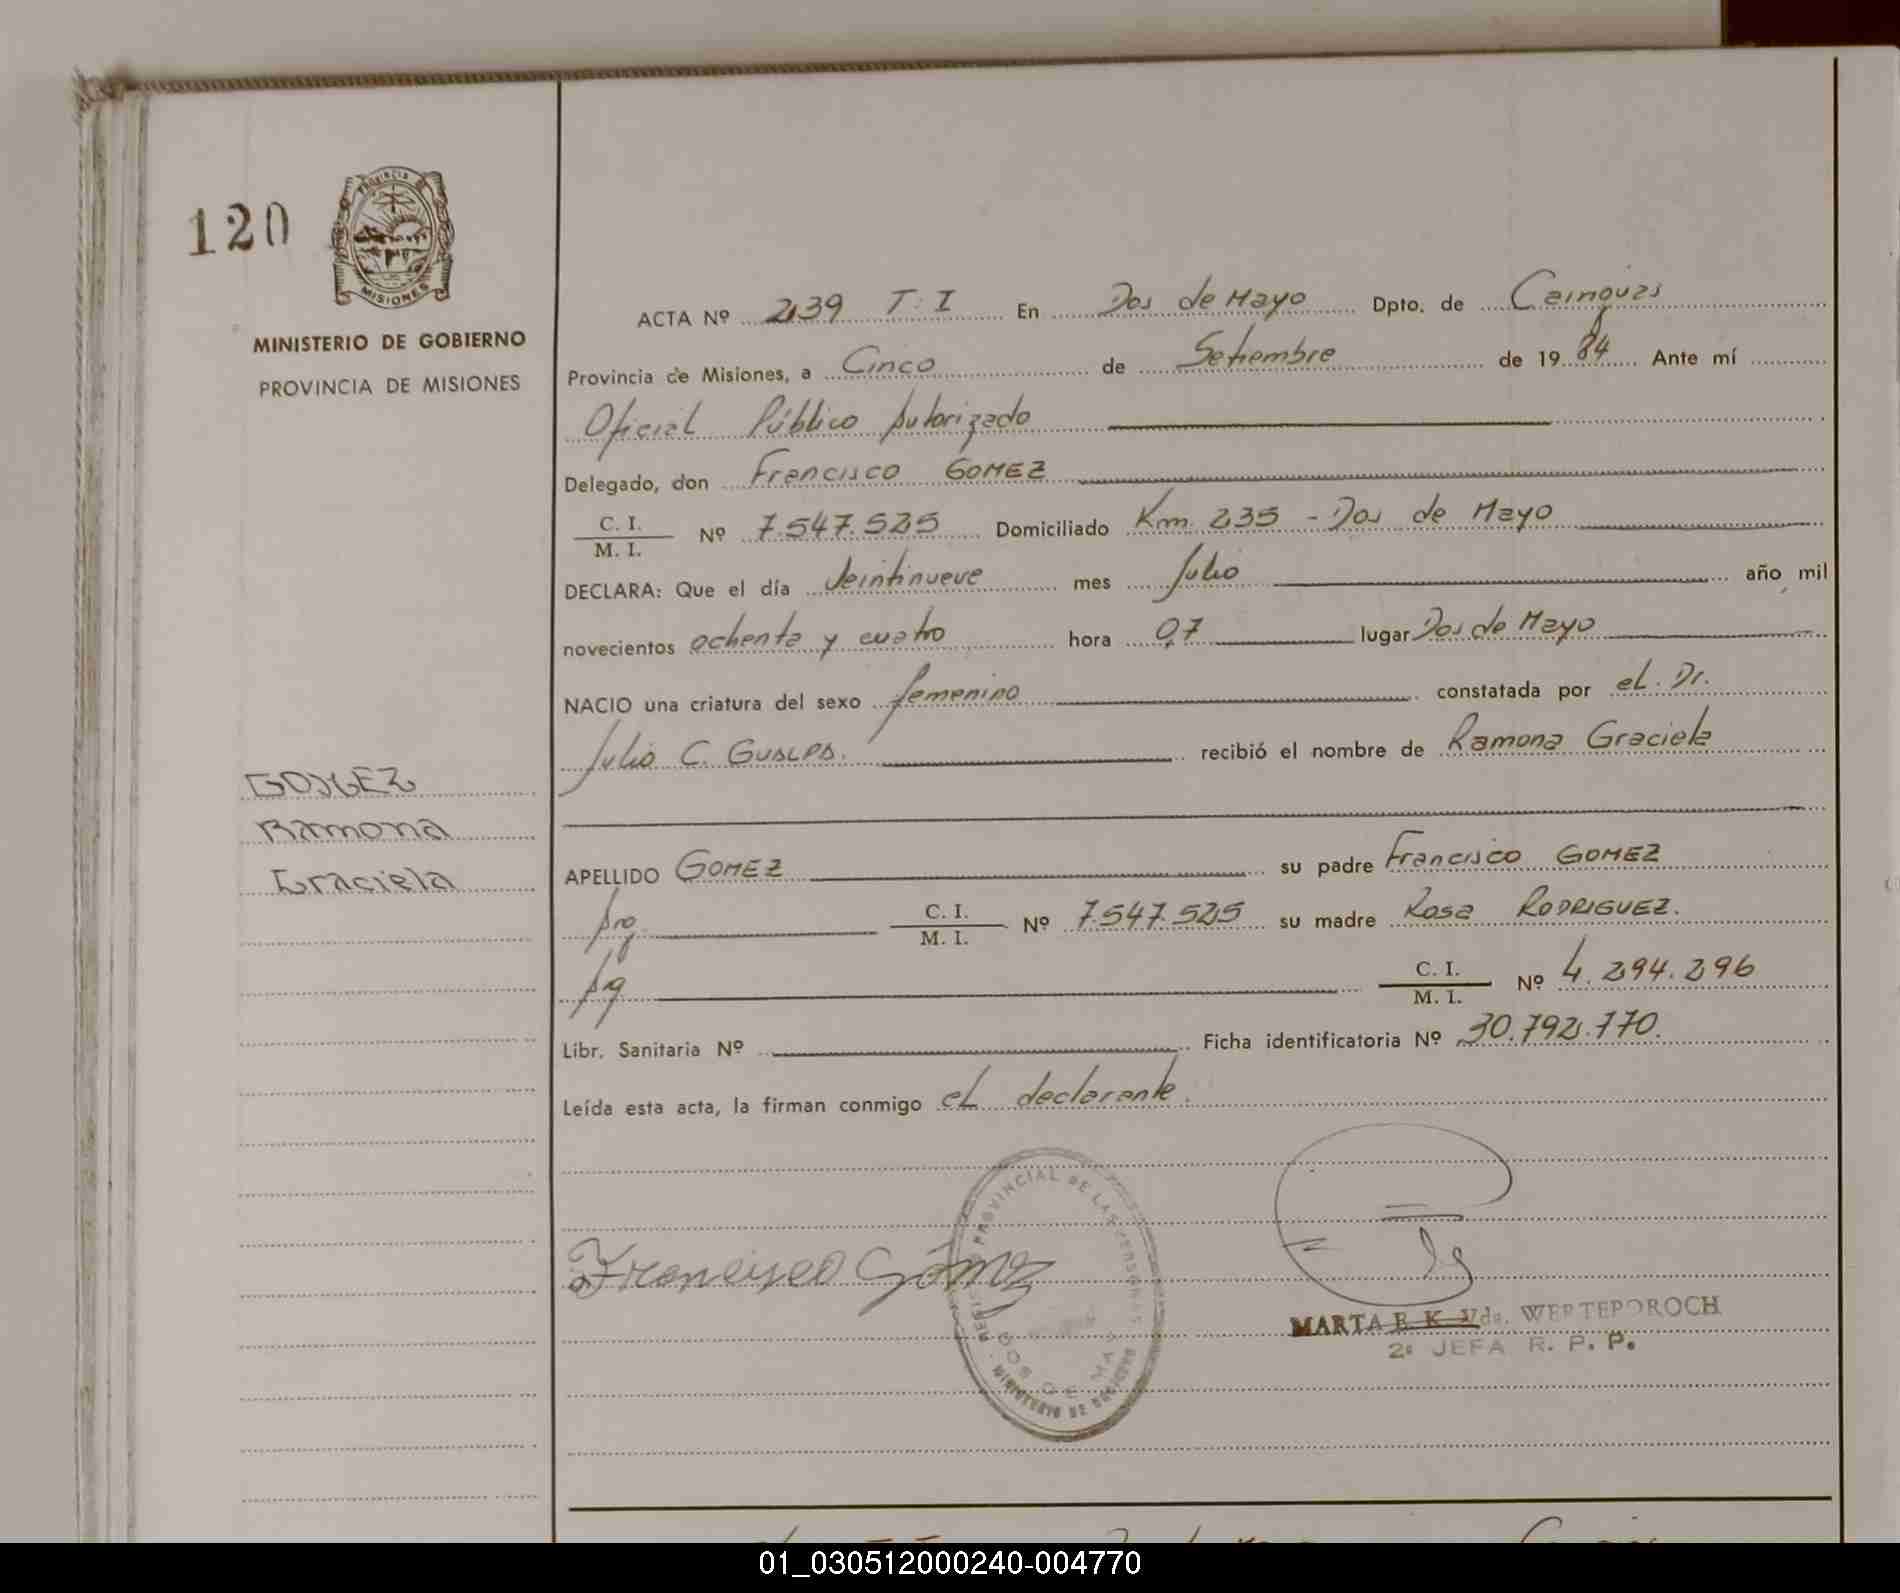 120
PROVINCIA DE
MISIONES
MINISTERIO DE GOBIERNO
PROVINCIA DE MISIONES
GOMEZ
Ramona
Graciela
ACTA Nº 239 T: I En Dos de Mayo Dpto. de Cainguas
Provincia de Misiones, a Cinco de Setiembre de 1984 Ante mí
Oficial Público Autorizado
Delegado, don Francisco GOMEZ
C. I.
M. I. Nº 7.547.525 Domiciliado Km. 235 - Dos de Mayo
DECLARA: Que el día Veintinueve mes Julio año mil
novecientos ochenta y cuatro hora 07 lugar Dos de Mayo
NACIO una criatura del sexo femenino constatada por el Dr.
Julio C. recibió el nombre de Ramona Graciela
APELLIDO GOMEZ su padre Francisco GOMEZ
Arg. C. I.
M. I. Nº 7.547.525 su madre Rosa RODRIGUEZ.
Arg C. I.
M. I. Nº 4.294.296
Libr. Sanitaria Nº Ficha identificatoria Nº 30.792.770.
Leída esta acta, la firman conmigo el declarante.
Francisco Gómez
PROVINCIAL DE LAS PERSONAS
DOS DE MAYO
MINISTERIO DE GOBIERNO
MARTA E. K. Vda. WERTEPOROCH
2º JEFA R. P. P.
01_030512000240-004770